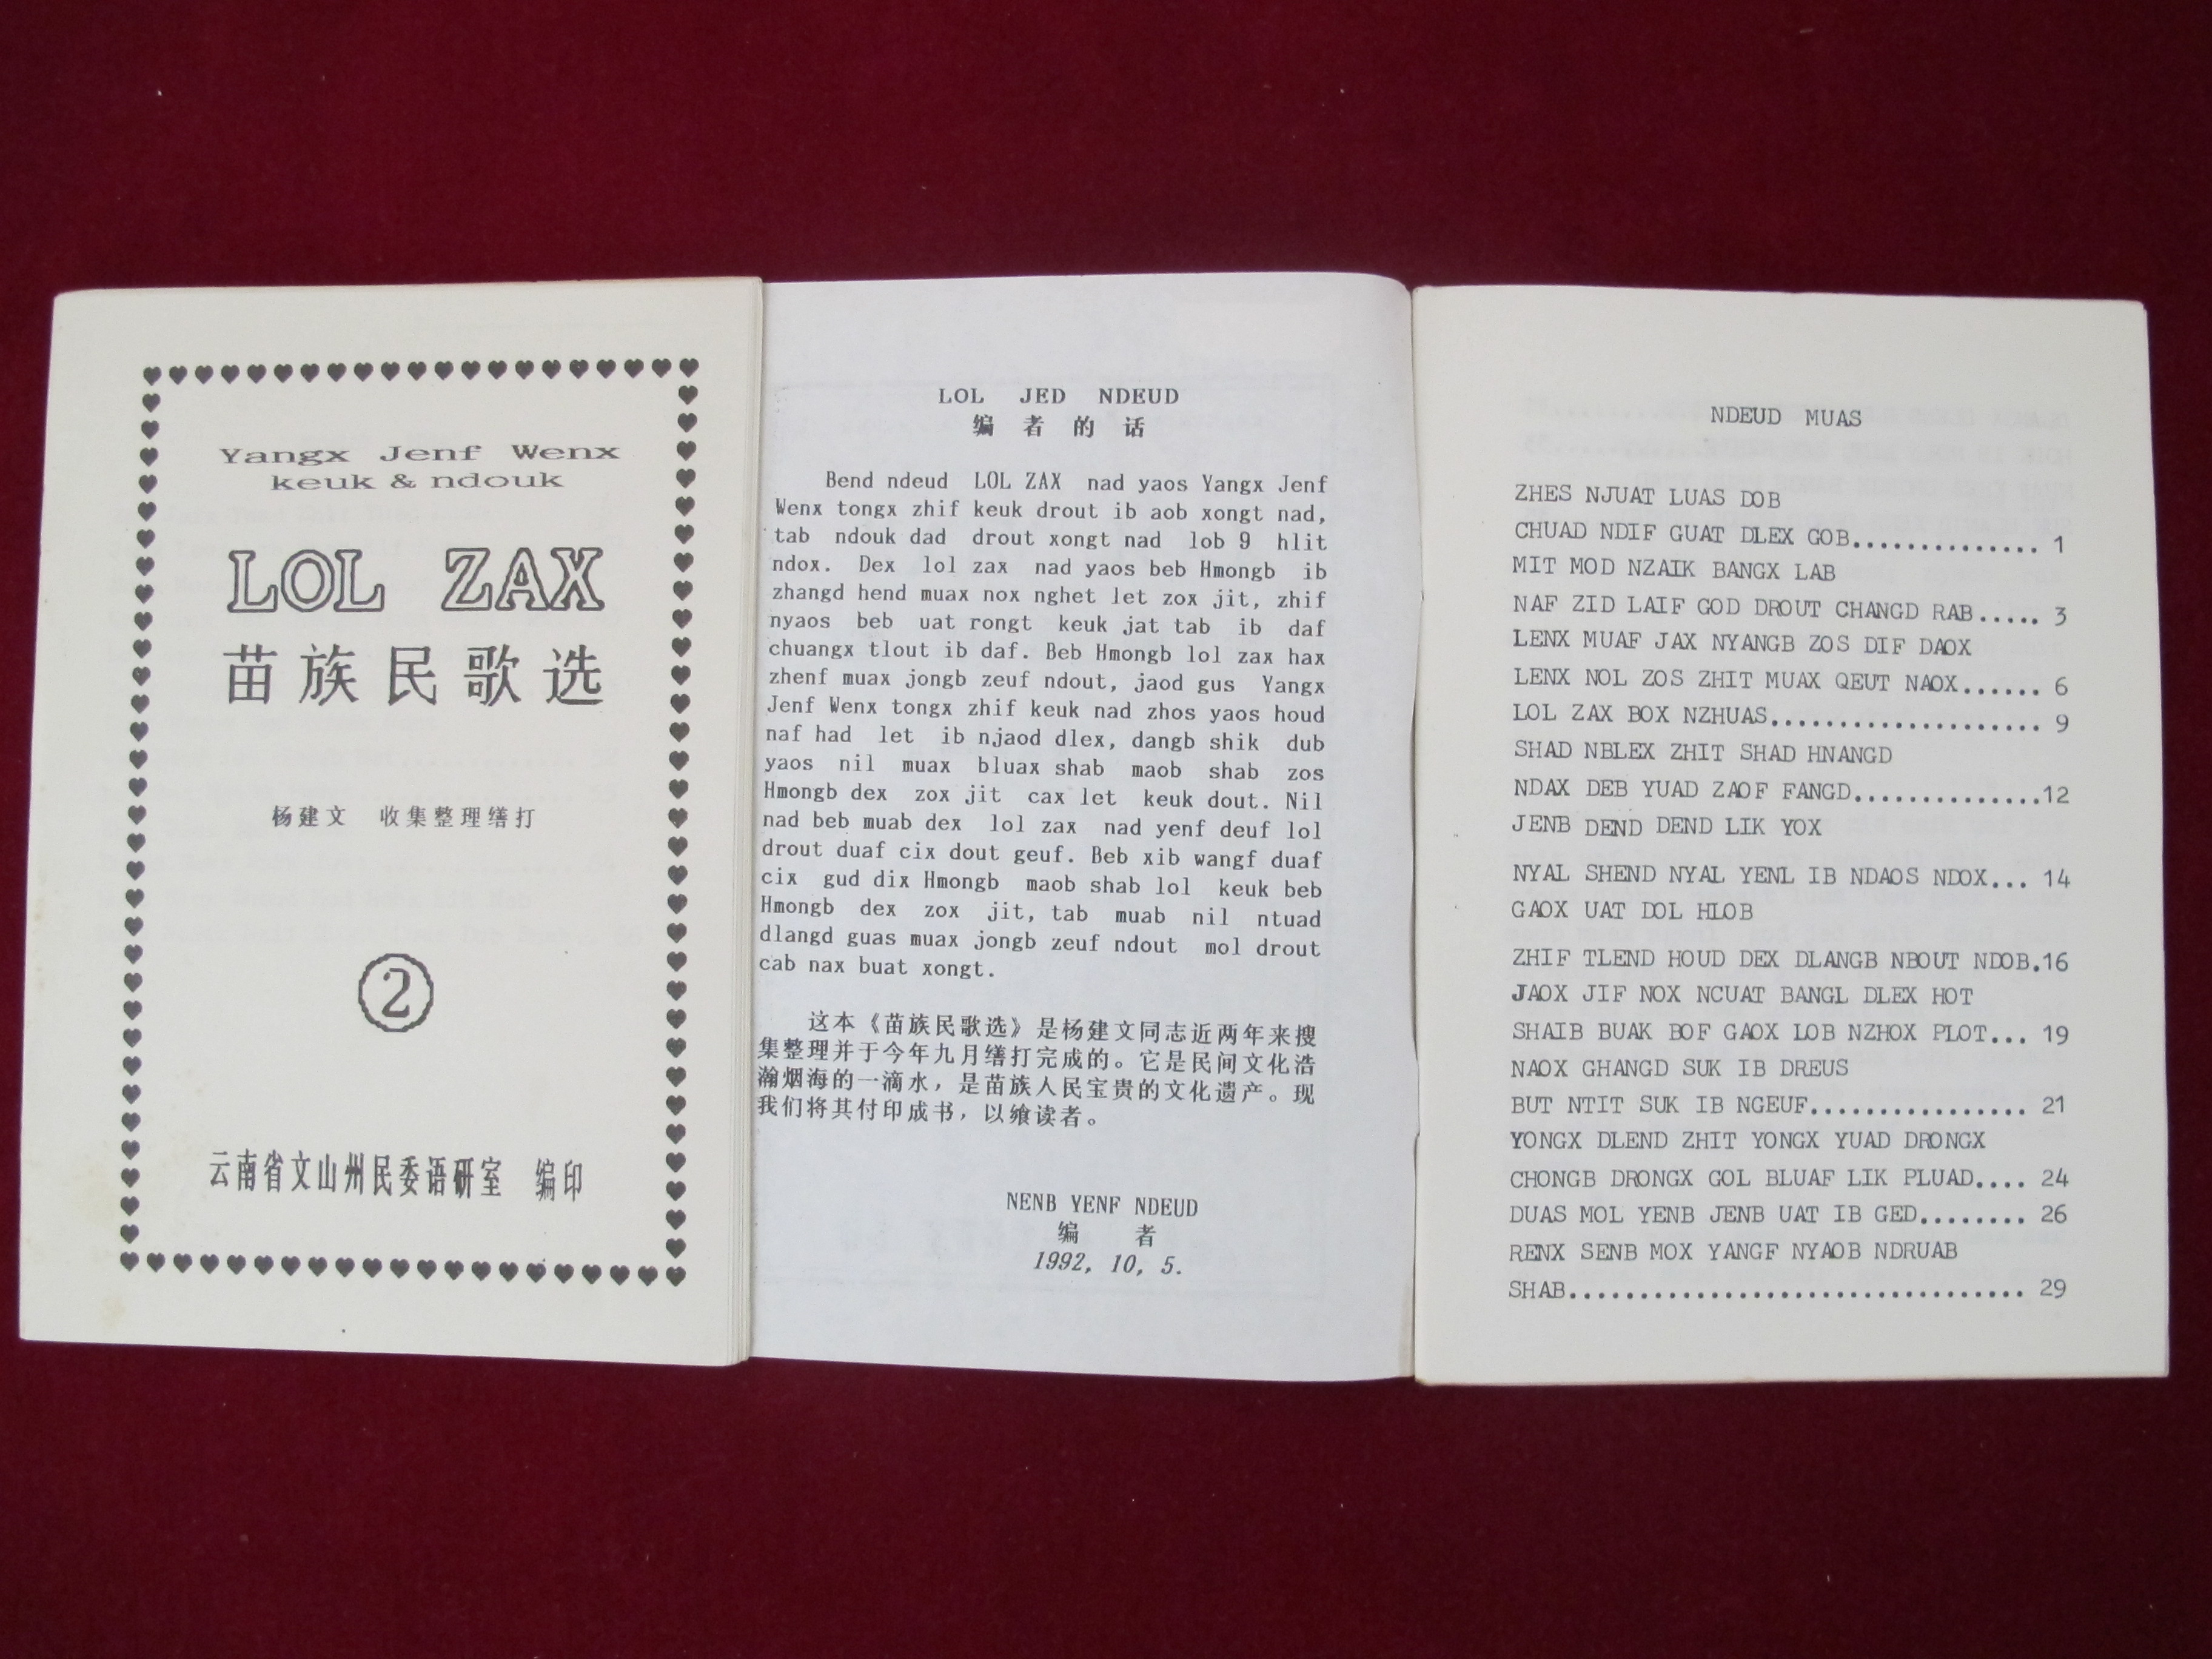 Yangx Jenf Wenx
keuk & ndouk
LOL ZAX
苗族民歌选
杨建文 收集整理缮打
2
云南省文山州民委语研室 编印
LOL JED NDEUD
编者的话
Bend ndeud LOL ZAX nad yaos Yangx Jenf
Wenx tongx zhif keuk drout ib aob xongt nad,
tab ndouk dad drout xongt nad lob 9 hlit
ndox. Dex lol zax nad yaos beb Hmongb ib
zhangd hend muax nox nghet let zox jit, zhif
nyaos beb uat rongt keuk jat tab ib daf
chuangx tlout ib daf. Beb Hmongb lol zax hax
zhenf muax jongb zeuf ndout, jaod gus Yangx
Jenf Wenx tongx zhif keuk nad zhos yaos houd
naf had let ib njaod dlex, dangb shik dub
yaos nil muax bluax shab maob shab zos
Hmongb dex zox jit cax let keuk dout. Nil
nad beb muab dex lol zax nad yenf deuf lol
drout duaf cix dout geuf. Beb xib wangf duaf
cix gud dix Hmongb maob shab lol keuk beb
Hmongb dex zox jit, tab muab nil ntuad
dlangd guas muax jongb zeuf ndout mol drout
cab nax buat xongt.
这本《苗族民歌选》是杨建文同志近两年来搜
集整理并于今年九月缮打完成的。它是民间文化浩
瀚烟海的一滴水，是苗族人民宝贵的文化遗产。现
我们将其付印成书，以飨读者。
NENB YENF NDEUD
编 者
1992, 10, 5.
NDEUD MUAS
ZHES NJUAT LUAS DOB
CHUAD NDIF GUAT DLEX GOB.............. 1
MIT MOD NZAIK BANGX LAB
NAF ZID LAIF GOD DROUT CHANGD RAB..... 3
LENX MUAF JAX NYANGB ZOS DIF DAOX
LENX NOL ZOS ZHIT MUAX QEUT NAOX...... 6
LOL ZAX BOX NZHUAS.................... 9
SHAD NBLEX ZHIT SHAD HNANGD
NDAX DEB YUAD ZAOF FANGD..............12
JENB DEND DEND LIK YOX
NYAL SHEND NYAL YENL IB NDAOS NDOX... 14
GAOX UAT DOL HLOB
ZHIF TLEND HOUD DEX DLANGB NBOUT NDOB.16
JAOX JIF NOX NCUAT BANGL DLEX HOT
SHAIB BUAK BOF GAOX LOB NZHOX PLOT... 19
NAOX GHANGD SUK IB DREUS
BUT NTIT SUK IB NGEUF................ 21
YONGX DLEND ZHIT YONGX YUAD DRONGX
CHONGB DRONGX GOL BLUAF LIK PLUAD.... 24
DUAS MOL YENB JENB UAT IB GED........ 26
RENX SENB MOX YANGF NYAOB NDRUAB
SHAB................................. 29